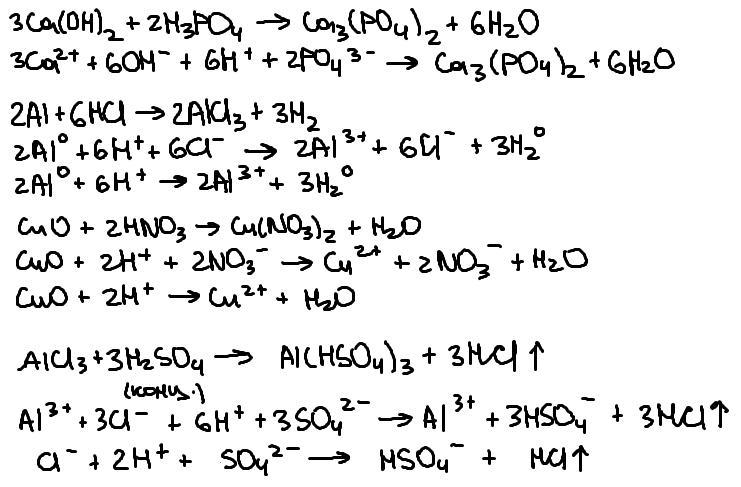 3Ca(OH)₂ + 2H₃PO₄ → Ca₃(PO₄)₂ + 6H₂O
3Ca²⁺ + 6OH⁻ + 6H⁺ + 2PO₄³⁻ → Ca₃(PO₄)₂ + 6H₂O
2Al + 6HCl → 2AlCl₃ + 3H₂
2Al⁰ + 6H⁺ + 6Cl⁻ → 2Al³⁺ + 6Cl⁻ + 3H₂⁰
2Al⁰ + 6H⁺ → 2Al³⁺ + 3H₂⁰
CuO + 2HNO₃ → Cu(NO₃)₂ + H₂O
CuO + 2H⁺ + 2NO₃⁻ → Cu²⁺ + 2NO₃⁻ + H₂O
CuO + 2H⁺ → Cu²⁺ + H₂O
AlCl₃ + 3H₂SO₄ → Al(HSO₄)₃ + 3HCl↑
(конц.)
Al³⁺ + 3Cl⁻ + 6H⁺ + 3SO₄²⁻ → Al³⁺ + 3HSO₄⁻ + 3HCl↑
Cl⁻ + 2H⁺ + SO₄²⁻ → HSO₄⁻ + HCl↑